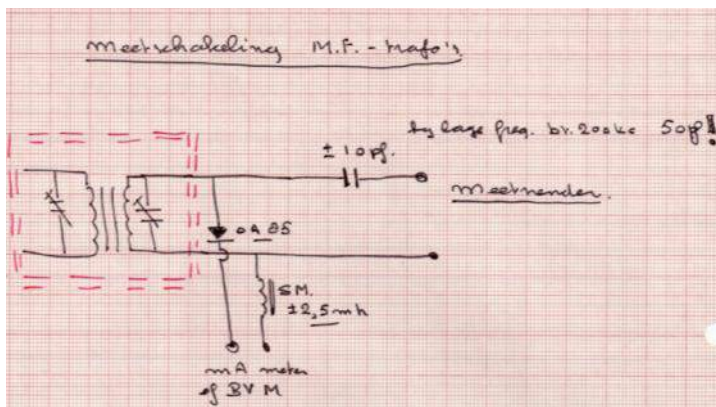 Meetschakeling M.F.-trafo's.
by lage freq. bv. 200kc 50pf!
± 10pf.
Meetzender.
OA 85
SM.
±2,5mh
mA meter
of BVM